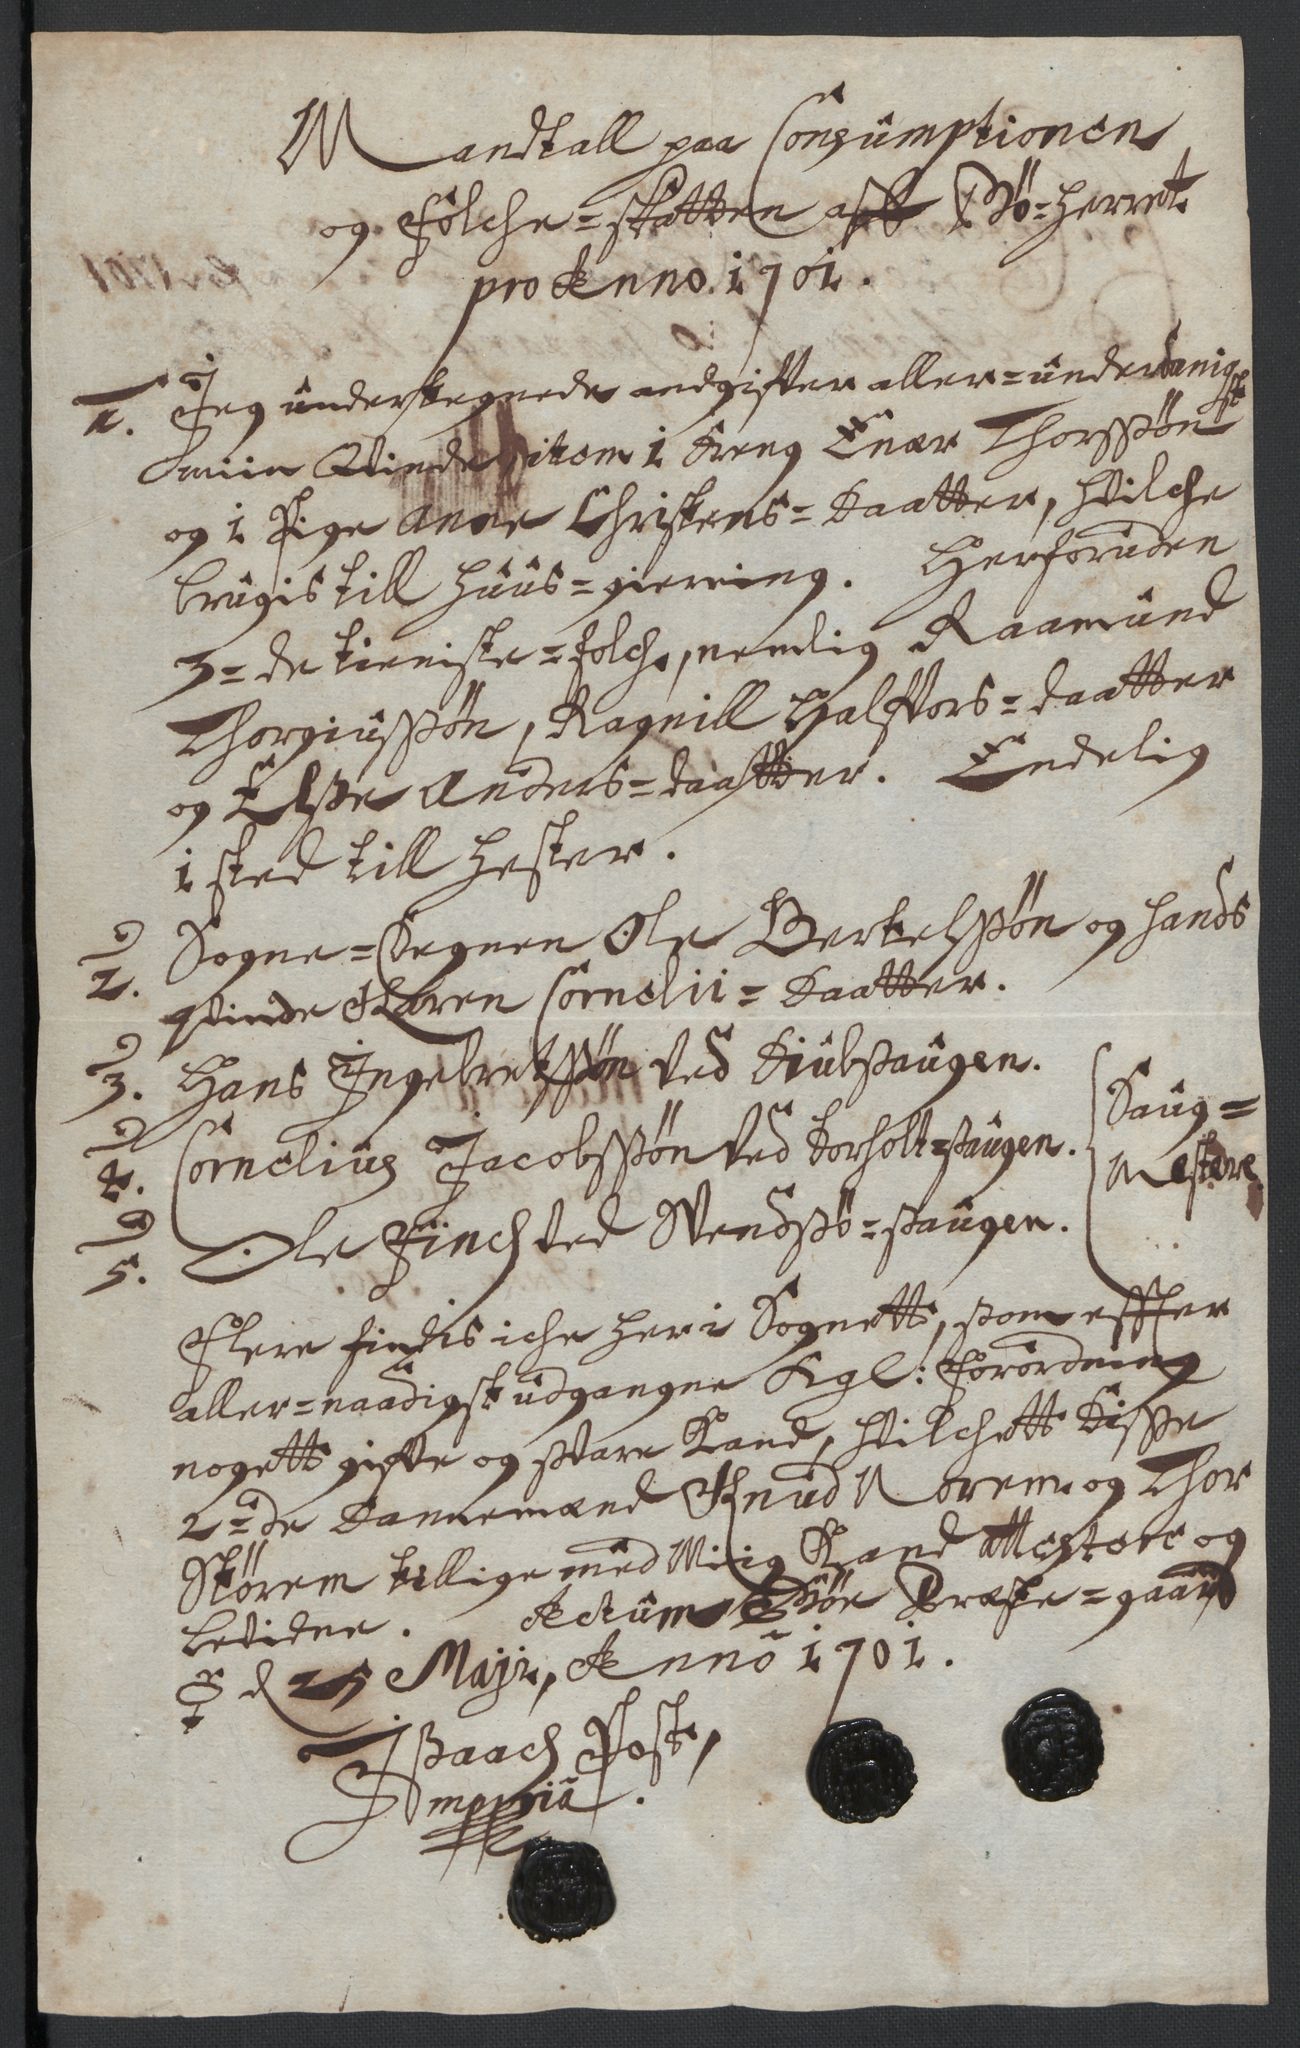 Mandtall paa Consumptionen
og folche-skatten aff Bö-herret
pro Anno 1701.
1. Jeg underskregnede andgifter aller-underdanigst
miin Qvinde item 1 dreng Enær Thorssøn
og 1 Pige Anne Christens-daatter, hvilche
brugis till huus-gierning. Herforuden
3-de tieniste-folch, nemlig Raamund
Thorgiussøn, Ragnill Halfvors-daatter
og Elsse Anders-daatter. Endelig
1 sted till hester.
2. Sogne-degnen Ole Bertelssøn og hands
qvinde Karen Cornelii-daatter.
3. Hans Ingelbretssøn ved
4. Cornelius Jacobssøn ved Borholt-saugen.
Saug-
mestere
5. Ole Finch ved Vendssø-saugen.
Flere findis iche her i Sognett, som effter
aller-naadigst udgangne Kgl: forordning
nogett gifve og svare kand, hvilchett disse
2-de dannemænd Knud Norem og Thor
Størem tillige med Mig kand attestere og
bevidne. Actum Böe Præste-gaard
d 25 Maji, Anno 1701.
Issaach Post,
mppria